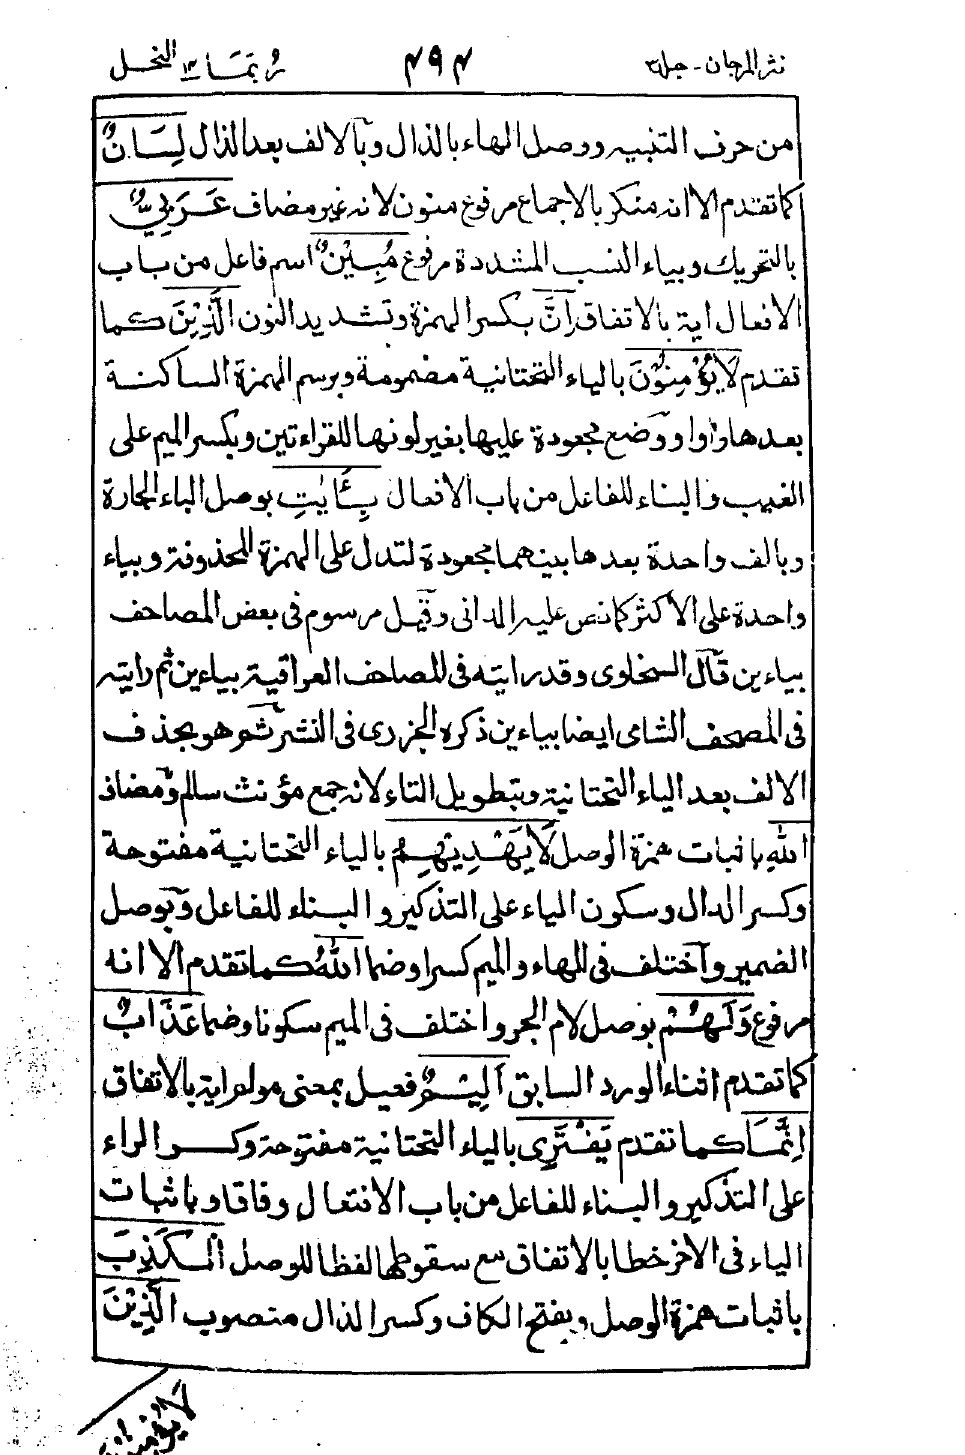 نثر المرجان - جلد ٣ ۴۹۴ ربما ١٤ النحل
من حرف التنبيه ووصل الهاء بالذال وبالالف بعد الذال لِسَانٌ
كما تقدم الا انه منكر بالاجماع مرفوع منون لانه غير مضاف عَرَبِيٌّ
بالتحريك وبياء النسب المشددة مرفوع مُبِيْنٌ اسم فاعل من باب
الافعال اية بالاتفاق اِنَّ بكسر الهمزة وتشديد النون الَّذِيْنَ كما
تقدم لَا يُؤْمِنُوْنَ بالياء التحتانية مضمومة وبرسم الهمزة الساكنة
بعدها واوا ووضع مجعودة عليها بغير لونها للقراءتين وبكسر الميم على
الغيب والبناء للفاعل من باب الافعال بِـَٔايٰتِ بوصل الباء الجارة
وبالف واحدة بعدها بينهما مجعودة لتدل على الهمزة المحذوفة وبياء
واحدة على الاكثر كما نص عليه الدانى وقيل مرسوم فى بعض المصاحف
بياءين قال السخاوى وقد رايته فى المصاحف العراقية بياءين ثم رايته
فى المصحف الشامى ايضا بياءين ذكره الجزرى فى النشر ثم هو بحذف
الالف بعد الياء التحتانية وبتطويل التاء لانه جمع مؤنث سالم ومضاف
اللهِ باثبات همزة الوصل لَا يَهْدِيْهِمُ بالياء التحتانية مفتوحة
وكسر الدال وسكون الياء على التذكير والبناء للفاعل وبوصل
الضمير واختلف فى الهاء والميم كسرا وضما اللهُ كما تقدم الا انه
مرفوع وَلَهُمْ بوصل لام الجر واختلف فى الميم سكونا وضما عَذَابٌ
كما تقدم اثناء الورد السابق اَلِيْمٌ فعيل بمعنى مولم اية بالاتفاق
اِنَّمَا كما تقدم يَفْتَرِى بالياء التحتانية مفتوحة وكسر الراء
على التذكير والبناء للفاعل من باب الافتعال وفاقا وباثبات
الياء فى الاخر خطا بالاتفاق مع سقوطها لفظا للوصل الْكَذِبَ
باثبات همزة الوصل وبفتح الكاف وكسر الذال منصوب الَّذِيْنَ
لَا يُؤْمِنُوْنَ